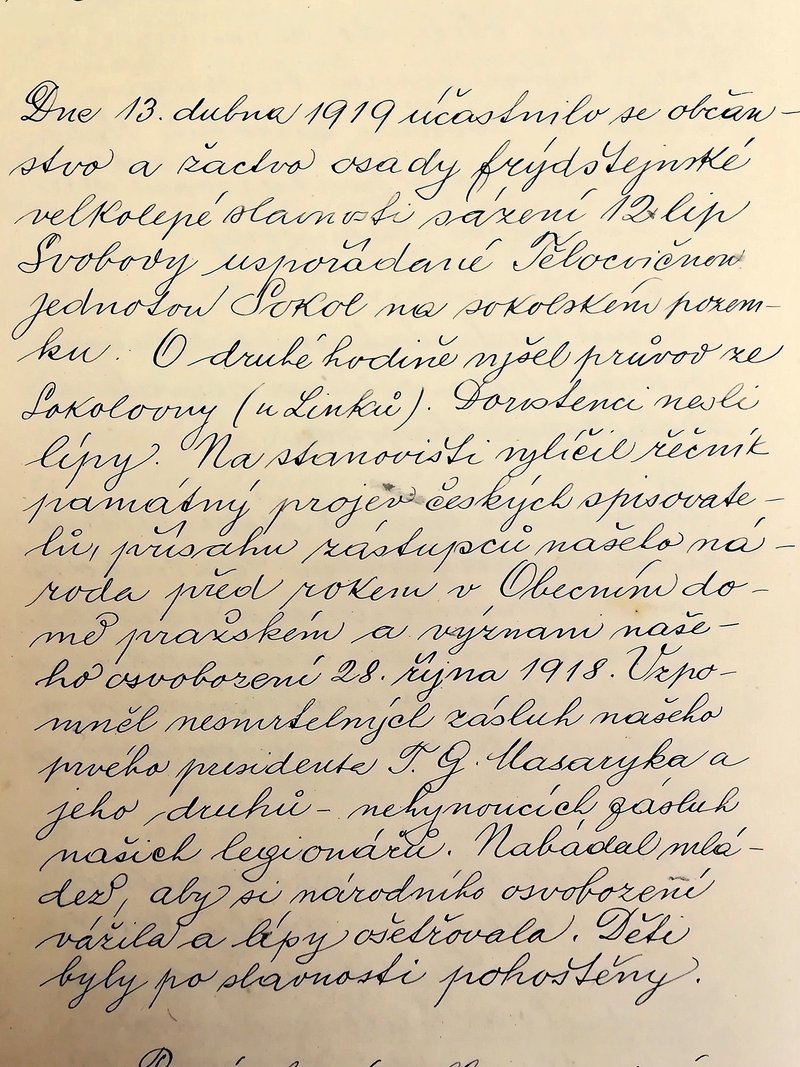 Dne 13. dubna 1919 účastnilo se občan-
stvo a žactvo osady frýdštejnské
velkolepé slavnosti sázení 12 lip
Svobody uspořádané Tělocvičnou
jednotou Sokol na sokolském pozem-
ku. O druhé hodině vyšel průvod ze
Sokolovny (u Linků). Dorostenci nesli
lípy. Na stanovišti vylíčil řečník
památný projev českých spisovate-
lů, přísahu zástupců našeho ná-
roda před rokem v Obecním do-
mě pražském a význam naše-
ho osvobození 28. října 1918. Vzpo-
mněl nesmrtelných zásluh našeho
prvého presidenta T. G. Masaryka a
jeho druhů - nehynoucích zásluh
našich legionářů. Nabádal mlá-
dež, aby si národního osvobození
vážila a lípy ošetřovala. Děti
byly po slavnosti pohoštěny.